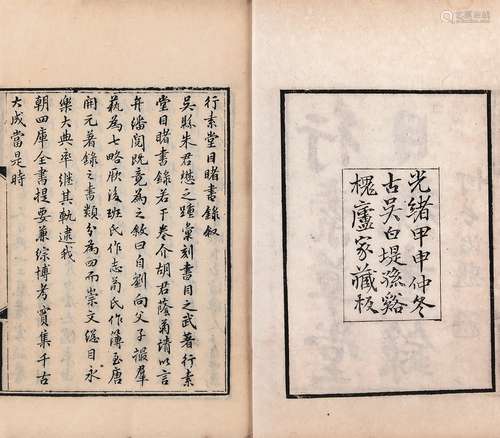 光緒甲申仲冬
古吳白堤孫谿
槐廬家藏板
行素堂目睹書錄敘
吳縣朱君懋之踵彙刻書目之式著行素
堂目睹書錄若干卷介胡君蔭菊請以言
弁繙閱既竟為之敘曰自劉向父子譔羣
蓺為七略厥後班氏作志荀氏作簿至唐
開元著錄之書類分為四而崇文總目永
樂大典率繼其軌逮我
朝四庫全書提要兼綜博考實集千古
大成當是時